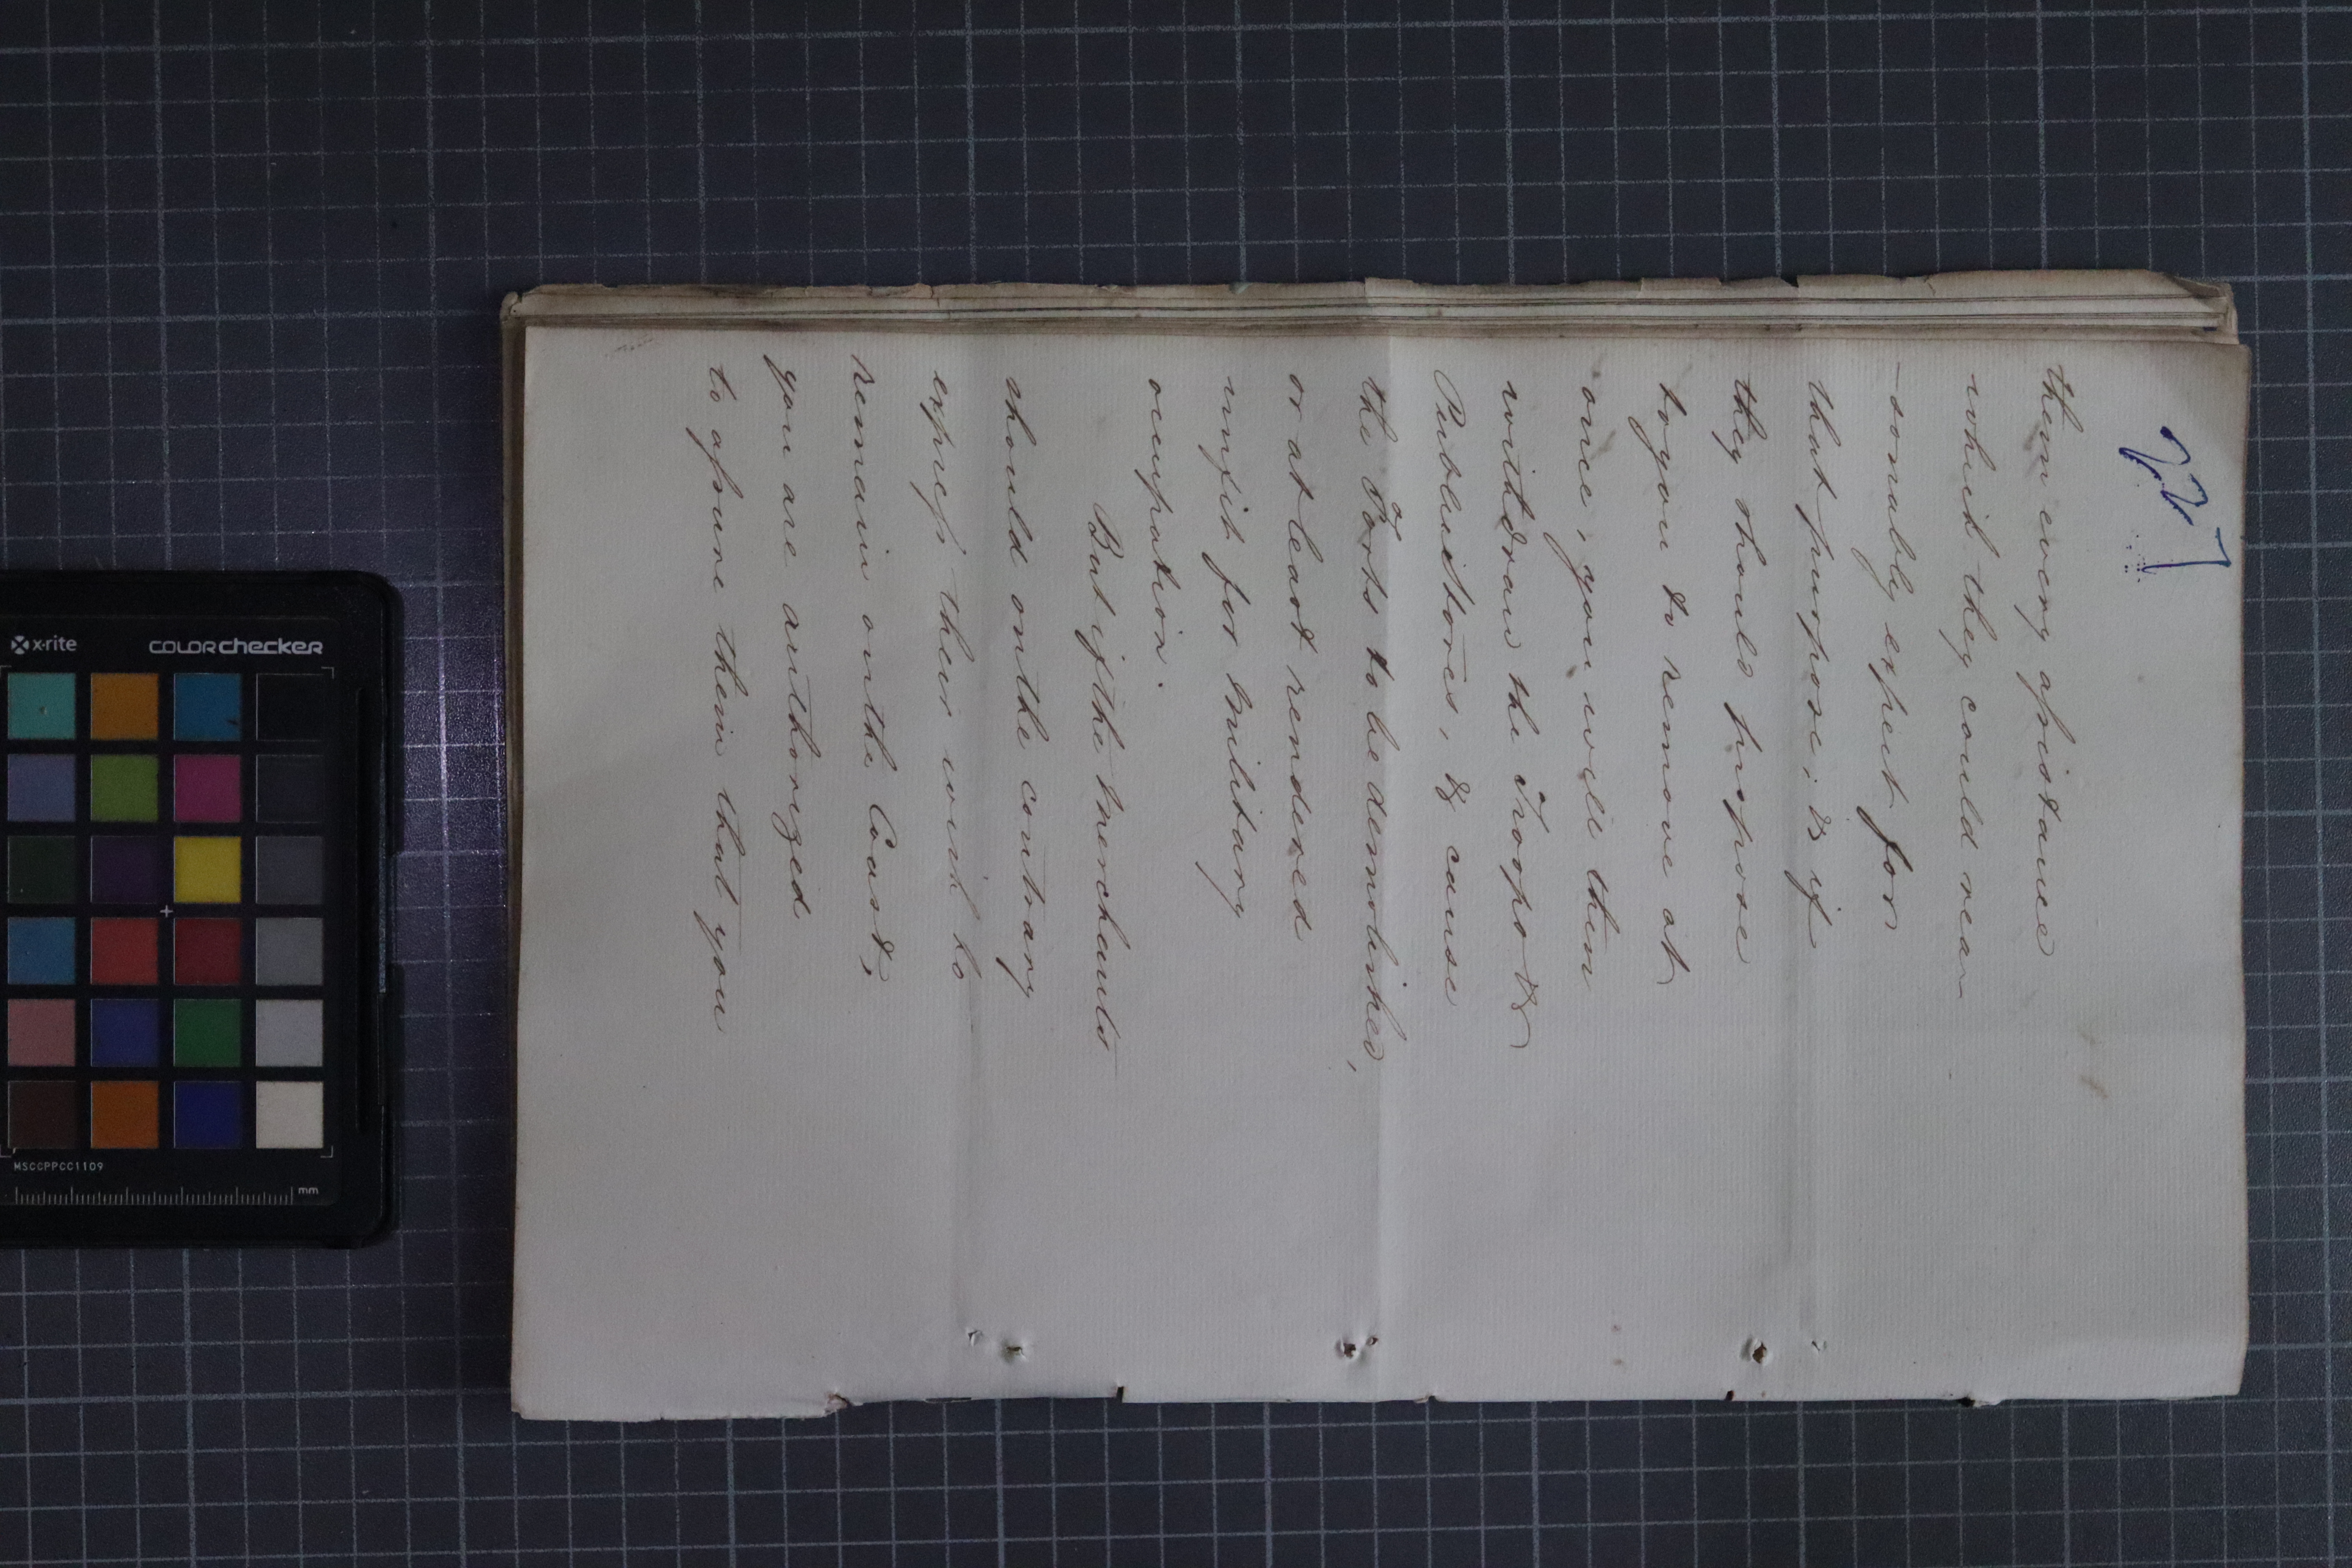 227
them every assistance
which they could rea-
-sonably expect for
that purpose; & if
they should propose
to you to remove at
once, you will then
withdraw the Troops &
Public Stores, & cause
the Forts to be demolished,
or at least rendered
unfit for Military
occupation.
But if the Merchants
should on the contrary
express their wish to
remain on the Coast,
you are authorized
to assure them that you
x-rite
colorchecker
MSCCPPCC1109
mm